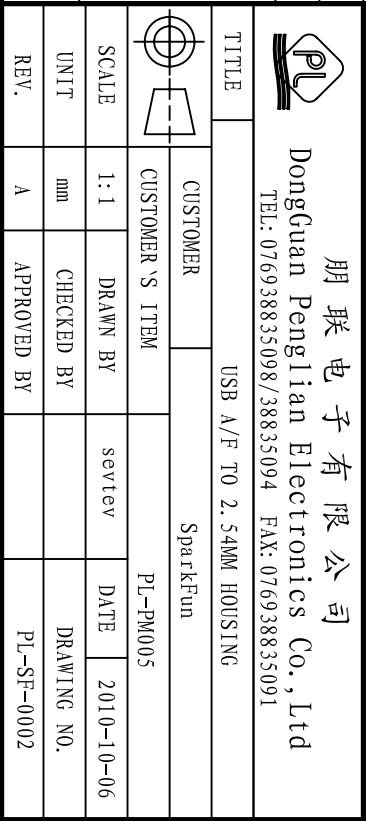 PL
朋联电子有限公司
DongGuan Penglian Electronics Co.,Ltd
TEL:076938835098/38835094 FAX:076938835091
TITLE USB A/F TO 2.54MM HOUSING
CUSTOMER SparkFun
CUSTOMER'S ITEM PL-PM005
SCALE 1:1 DRAWN BY sevtev DATE 2010-10-06
UNIT mm CHECKED BY DRAWING NO.
REV. A APPROVED BY PL-SF-0002